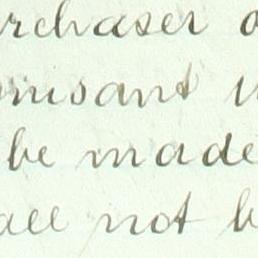 rchaser o
misant
be made
all not b